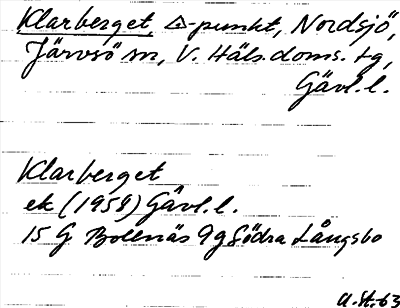 Klarberget, △-punkt, Nordsjö,
Järvsö sn, V. Häls. doms. tg,
Gävl. l.
Klarberget
ek (1958) Gävl. l.
15 G Bollnäs 9 g Södra Långsbo
A. St. 63